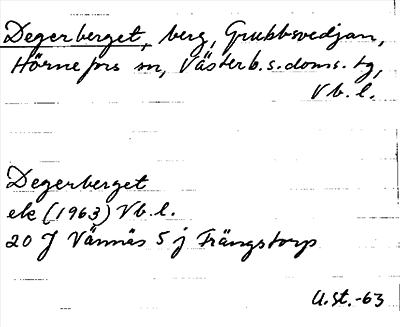 Degerberget, berg, Grubbsvedjan,
Hörnefors sn, Västerb. s. doms. tg,
Vb. l.
Degerberget
ek (1963) Vb. l.
20 J Vännäs 5 j Främgstorp
U.st.-63